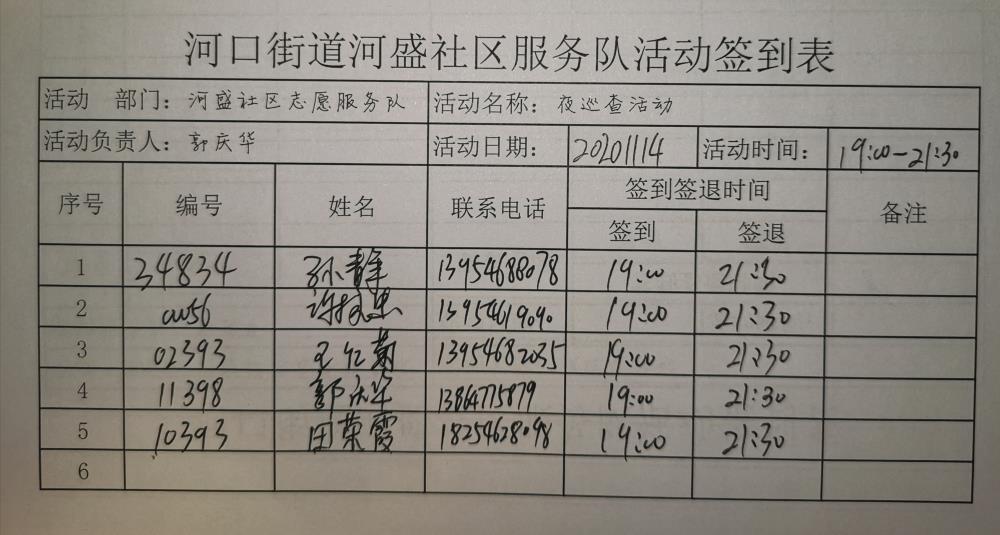 河口街道河盛社区服务队活动签到表
活动 部门：河盛社区志愿服务队 活动名称：夜巡查活动
活动负责人：郭庆华 活动日期：20201114 活动时间：19:00-21:30
序号 编号 姓名 联系电话 签到签退时间 备注
签到 签退
1 34834 孙青 13954688078 19:00 21:30
2 13954619090 19:00 21:30
3 02393 王红菊 13954682035 19:00 21:30
4 11398 郭庆华 13864775879 19:00 21:30
5 10393 田荣霞 18254628098 19:00 21:30
6